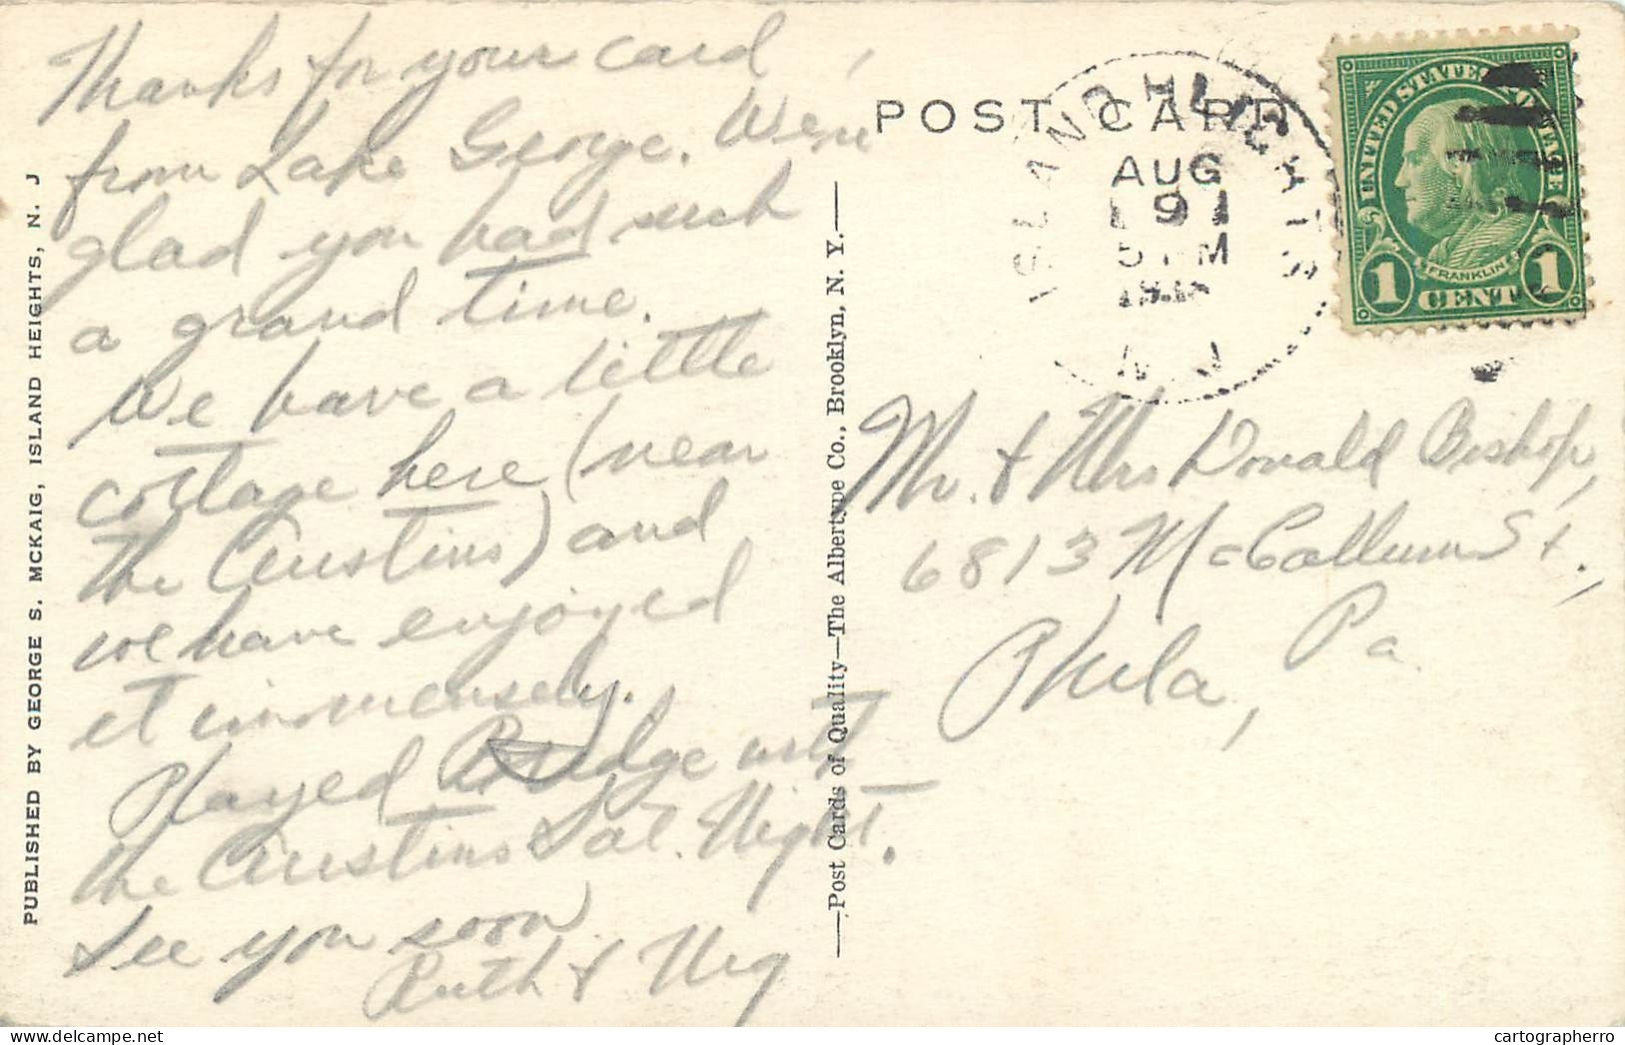 Thanks for your card
from Lake George. Were
glad you had such
a grand time.
We have a little
cottage here (near
the Austins) and
we have enjoyed
it immensely.
Played Bridge with
the Austins Sat. Night.
See you soon
Ruth &
PUBLISHED BY GEORGE S. MCKAIG, ISLAND HEIGHTS, N. J
—Post Cards of Quality—The Albertype Co., Brooklyn, N. Y.—
POST CARD
ISLAND HEIGHTS
AUG
19
5 PM
N J
UNITED STATES POSTAGE
FRANKLIN
1 CENT 1
Mr. & Mrs Donald Bishop,
6813 McCallum St.,
Phila, Pa.
cartographerro